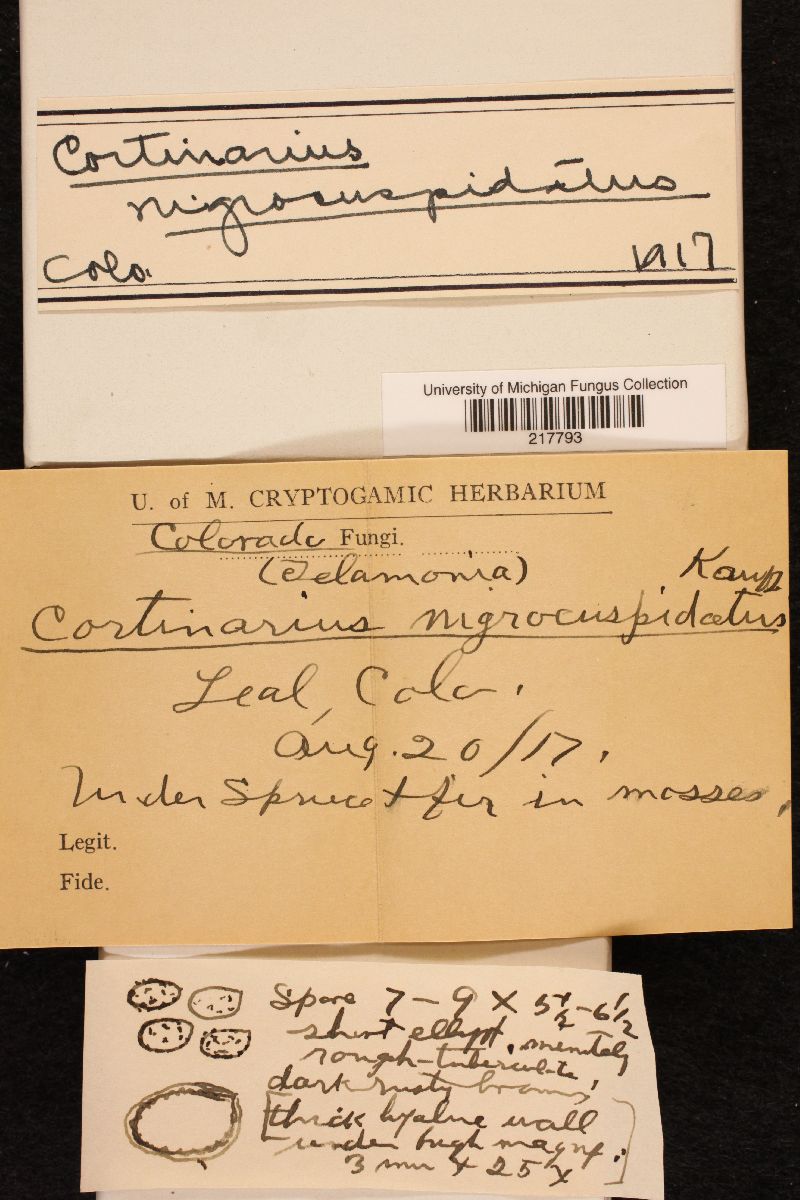 Cortinarius
nigrocuspidatus
Colo. 1917
University of Michigan Fungus Collection
217793
U. of M. CRYPTOGAMIC HERBARIUM
Colorado Fungi.
(Telamonia) Kauff
Cortinarius nigrocuspidatus
Leal, Colo.
Aug. 20/17.
Under Spruce + fir in mosses.
Legit.
Fide.
Spore 7-9 X 5½-6½
short ellipt, minutely
rough-tuberculate,
dark rusty brown,
[thick hyaline wall
under high magnf.]
3 mm + 25 X